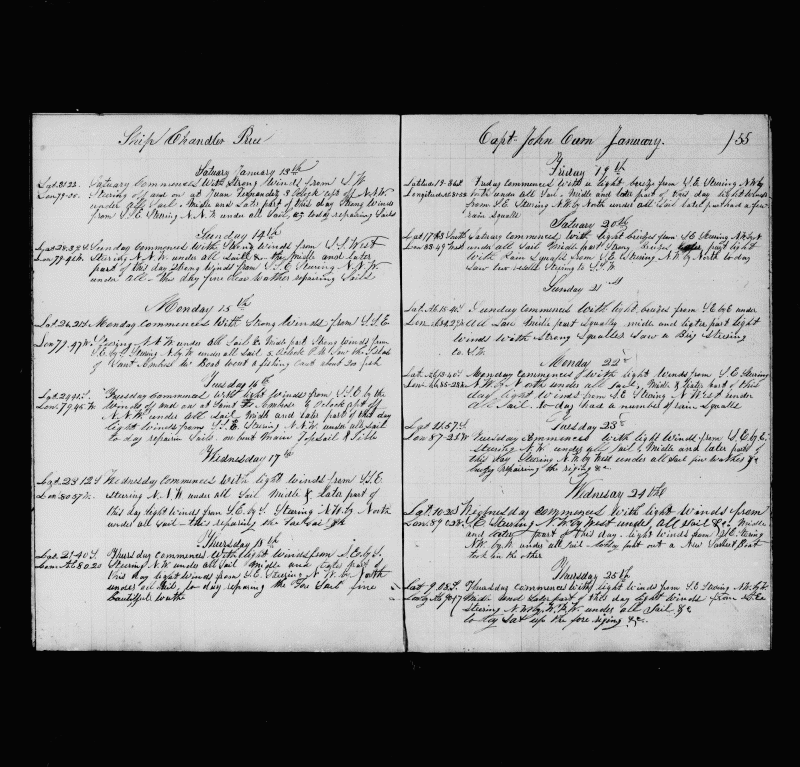 Ship Chandler Price
Satuary January 13th
Lat 31.22. Satuary Commences With Strong Winds from S.W.
Lon 79-50. Steering off and on at Juan Fernandez 3 Oclock apt of N.N.W.
under all Sail. Midle and Late part of this day Strong Winds
from S.E. Steering N.N.W. under all Sails, to day repairing Sails
Sunday 14th
Lat 28.32 S Sunday Commences With Strong Winds from S.S. West
Lon 79.41 W. Steering N.N.W. under all Sails & the Midle and later
part of this day Strong Winds from S.S.E. Steering N.N.W.
under all - this day fine clear wather repairing Sails
Monday 15th
Lat. 26.21 S Monday Commences With Strong Winds from S.S.E.
Lon 79.47 W. Steering N.W. under all Sail & Midle part Strong Winds from
S.E. by S. Steering N. by W. under all Sail 5 oclock P.M. Saw the Island
of Saint Ambose the Boat went a fishing Caut about 200 fish
Tuesday 16th
Lat. 24.41 S. Tuesday Commences With light Winds from S.S.E. by the
Lon 79.45 W. Wind of and on at Saint Ambose 6 Oclock apt of
N.N.W. under all Sail. Midle and later part of this day
light Winds from S.S.E. Steering N.N.W. under all Sail
to day repairin Sails. on bent Main Topsail & Jibb
Wednesday 17th
Lat. 23.12 S Wednesday Commences with light Winds from S.S.E.
Lon: 80.57 W. Steering N.N.W under all Sail Midle & Later part of
this day light Winds from S.E. by S. Steering N.W. by North
under all Sail - this repairing the Sail &c
Thursday 18th
Lat. 21.40 S. Thursday Commences With light Winds from S.E. by S.
Steering N.W. under all Sail Midle and later part of
this day light Winds from S.E. Steering N.W. by North
under all Sail, to day repairing the Fore Sail fine
bautifull wethr
Capt. John Curn January. 155
Friday 19th
Latitude 19-36 S Friday commences with a light breeze from S.E. Steering N.W. by
North under all Sail. Midle and later part of this day light Winds
from S.E. Steering N.W. by North under all Sail later part had a few
rain Squalls
Satuary 20th
Lat 17-43 South Satuary Commences With light breizes from S.E. Steering N.W. by N
Lon 83-49 West under all Sail Midle part Strong breizes part light
With Rain Squalls from S.E. Steering N.W. by North today
Saw two vessels Steering to S.W.
Sunday 21st
Lat. 15-41 S Sunday Commences With light breizes from S.E. by E under
all Sail Midle part Squally midle and later part light
Winds with Strong Squalls Saw a Brig Steering
to S.W.
Monday 22d
Lat. 13.40 S. Monday Commences With light Winds from S.E. Steering
Lon 85-28 W N.W. by North under all Sails, Midle & Later part of this
day light Winds from S.E. Steering N West under
all Sail to day had a number of rain Squalls
Tuesday 23d
Lat 11.57 S.
Lon 87-25 W Tuesday commences With light Winds from S.E. by E.
Steering N.W. under all Sail & Midle and later part of
this day Steering N.W. by West under all Sail
busy repairing the riging &c.
Wednesay 24th
Lat. 10-25 S Wednesday commences With light Winds from
Lon: 89.28 S.E. Steering N.W. by West under, all Sail &c. Midle
and later part of this day light Winds from S.E. Steering
N.W. by W. under all Sail - today put out a New Larbert Boat
took in the other
Thursday 25th
Lat 9.08 S. Thursday commences With light Winds from S.E. Steering N.W. by W.
Midle and Later part of this day light Winds from S.E.
Steering N.W. by W. under all Sail &c
to day Sat up the fore riging &c.